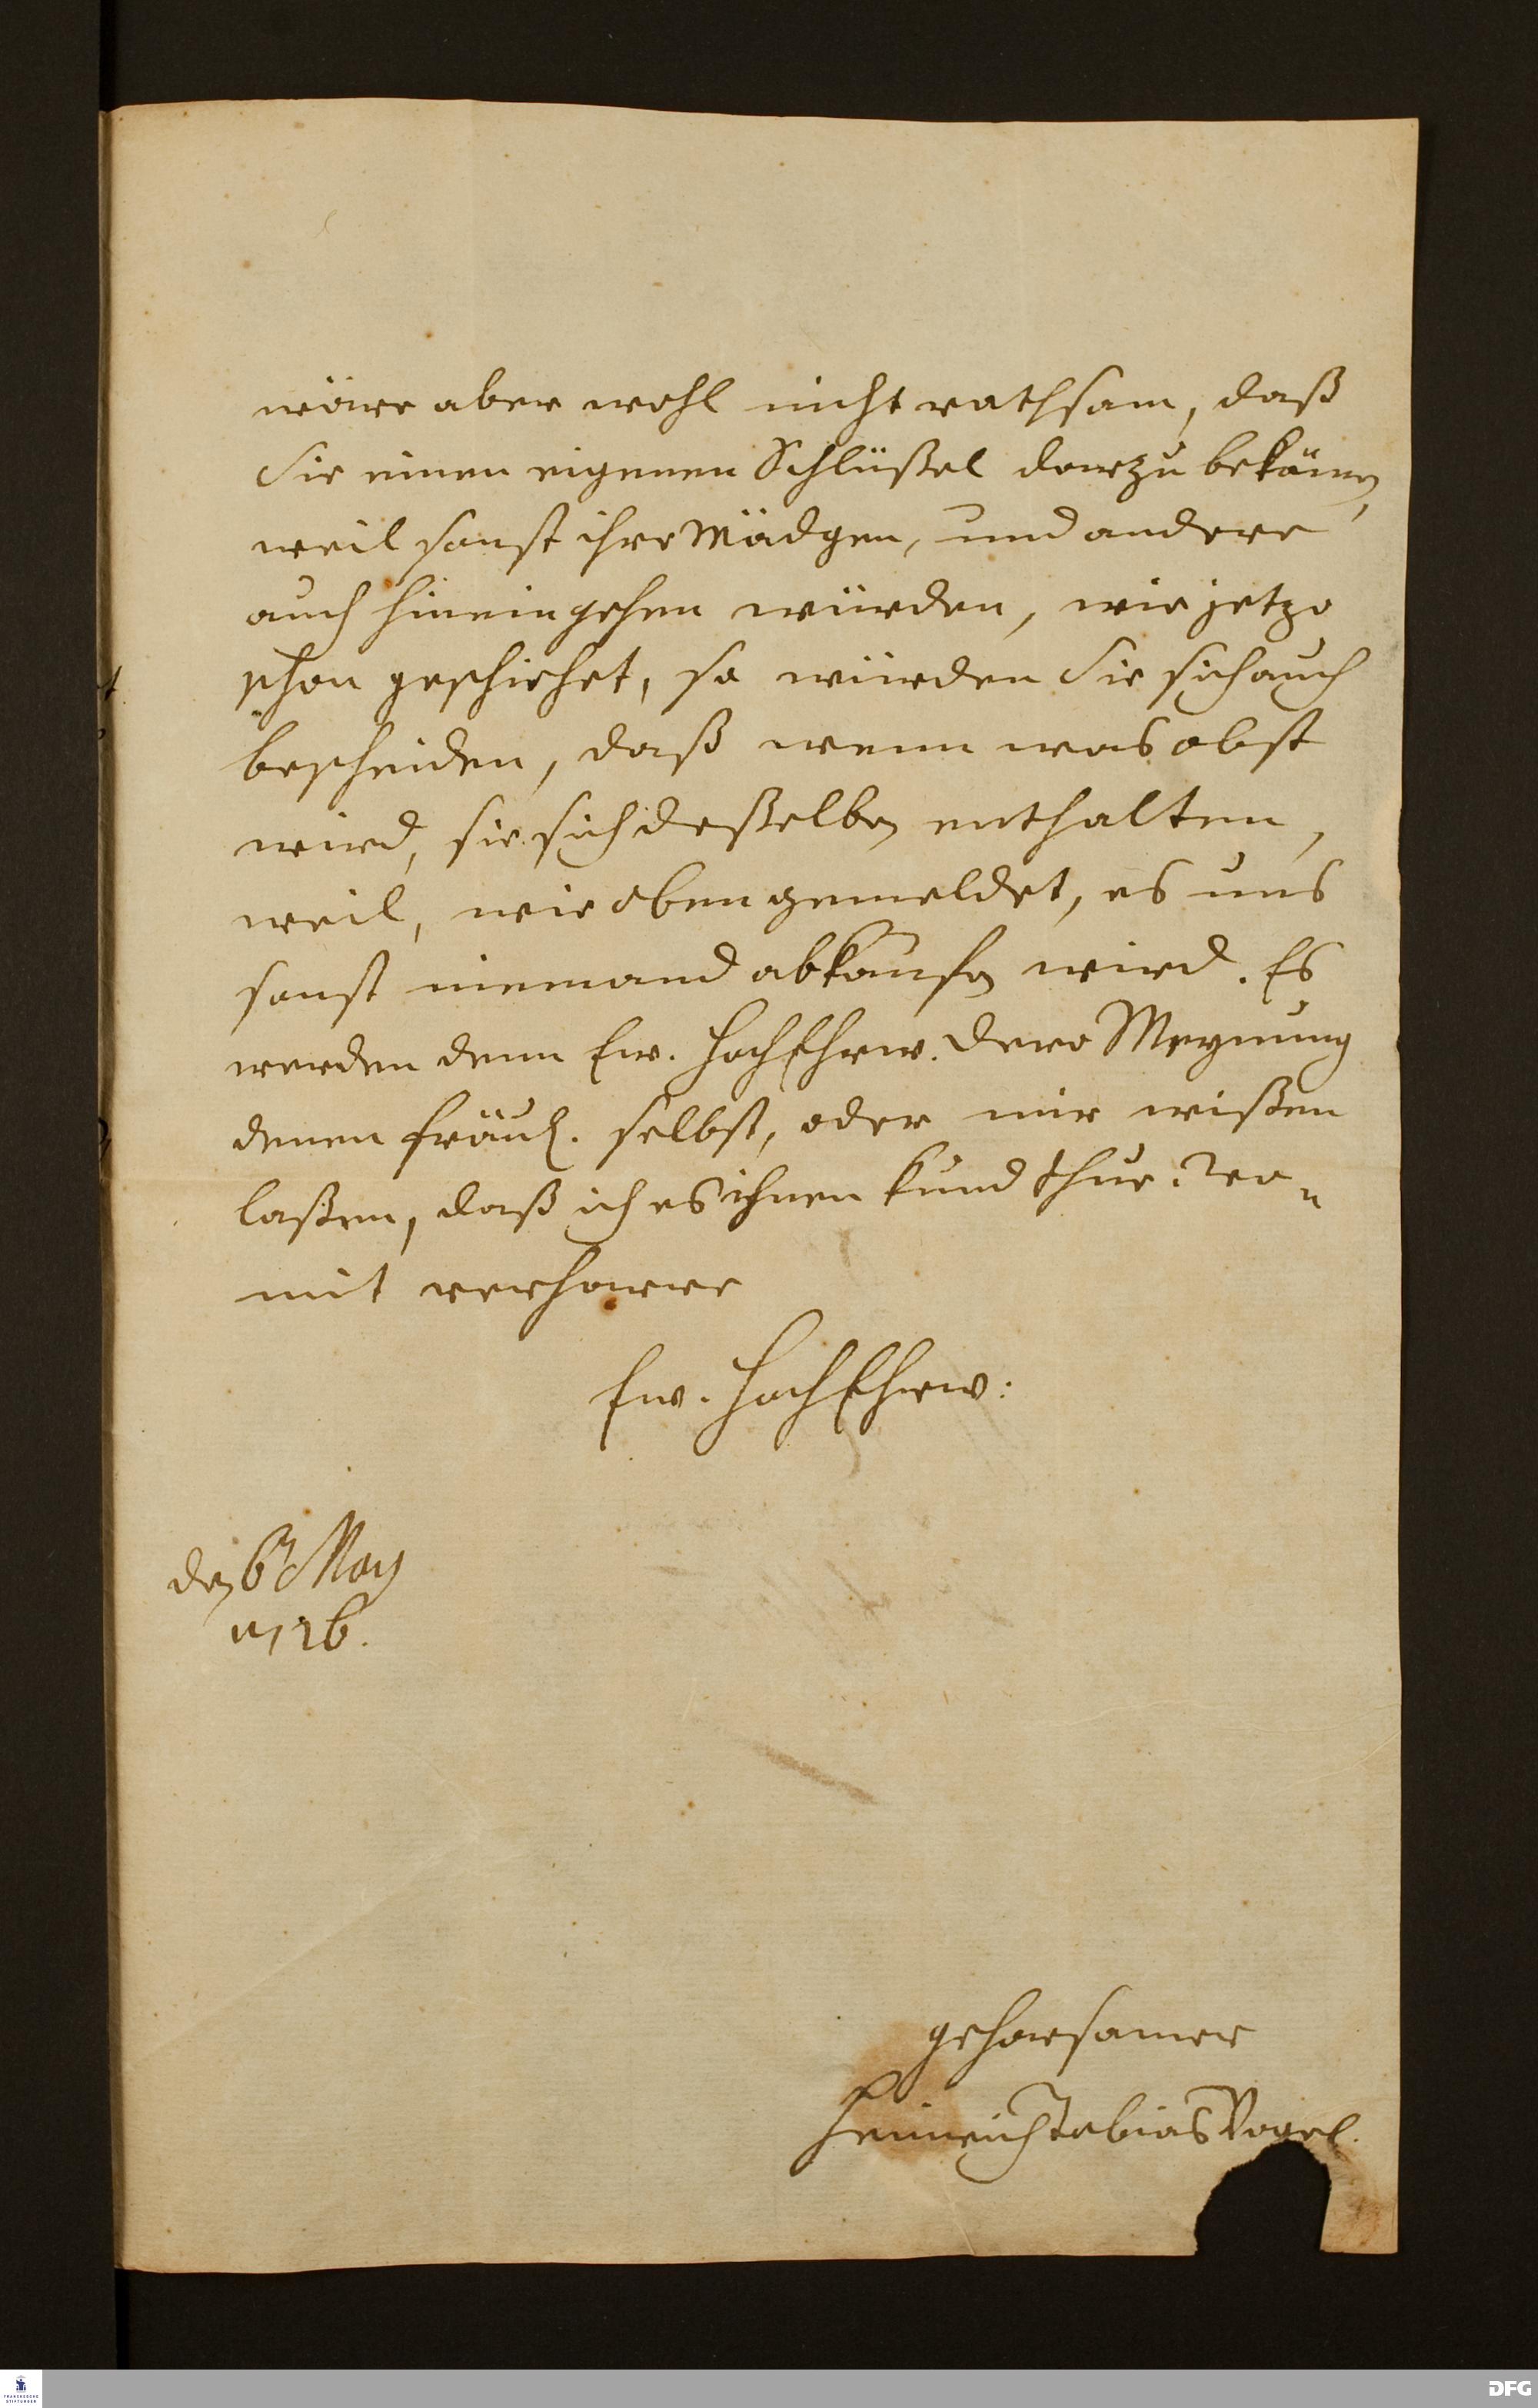 wäre aber wohl nicht rathsam, daß
Sie einen eigenen Schlüßel darzu bekämen,
weil sonst ihre Mädgen, und andere
auch hinein gehen würden, wie jetzo
schon geschiehet, so würden Sie sich auch
bescheiden, daß wenn was obst
wird, sie sich deßelben enthalten,
weil, wie oben gemeldet, es uns
sonst niemand abkaufen wird. Es
werden denn Ew. HochEhrw. Dero Meynung
denen Fräul. selbst, oder mir wißen
laßen, daß ich es ihnen kund thue. Wo-
mit verharre
Ew. HochEhrw:
den 6 May
1726.
gehorsamer
Heinrich Tobias Vogel.
FRANCKESCHE
STIFTUNGEN
DFG